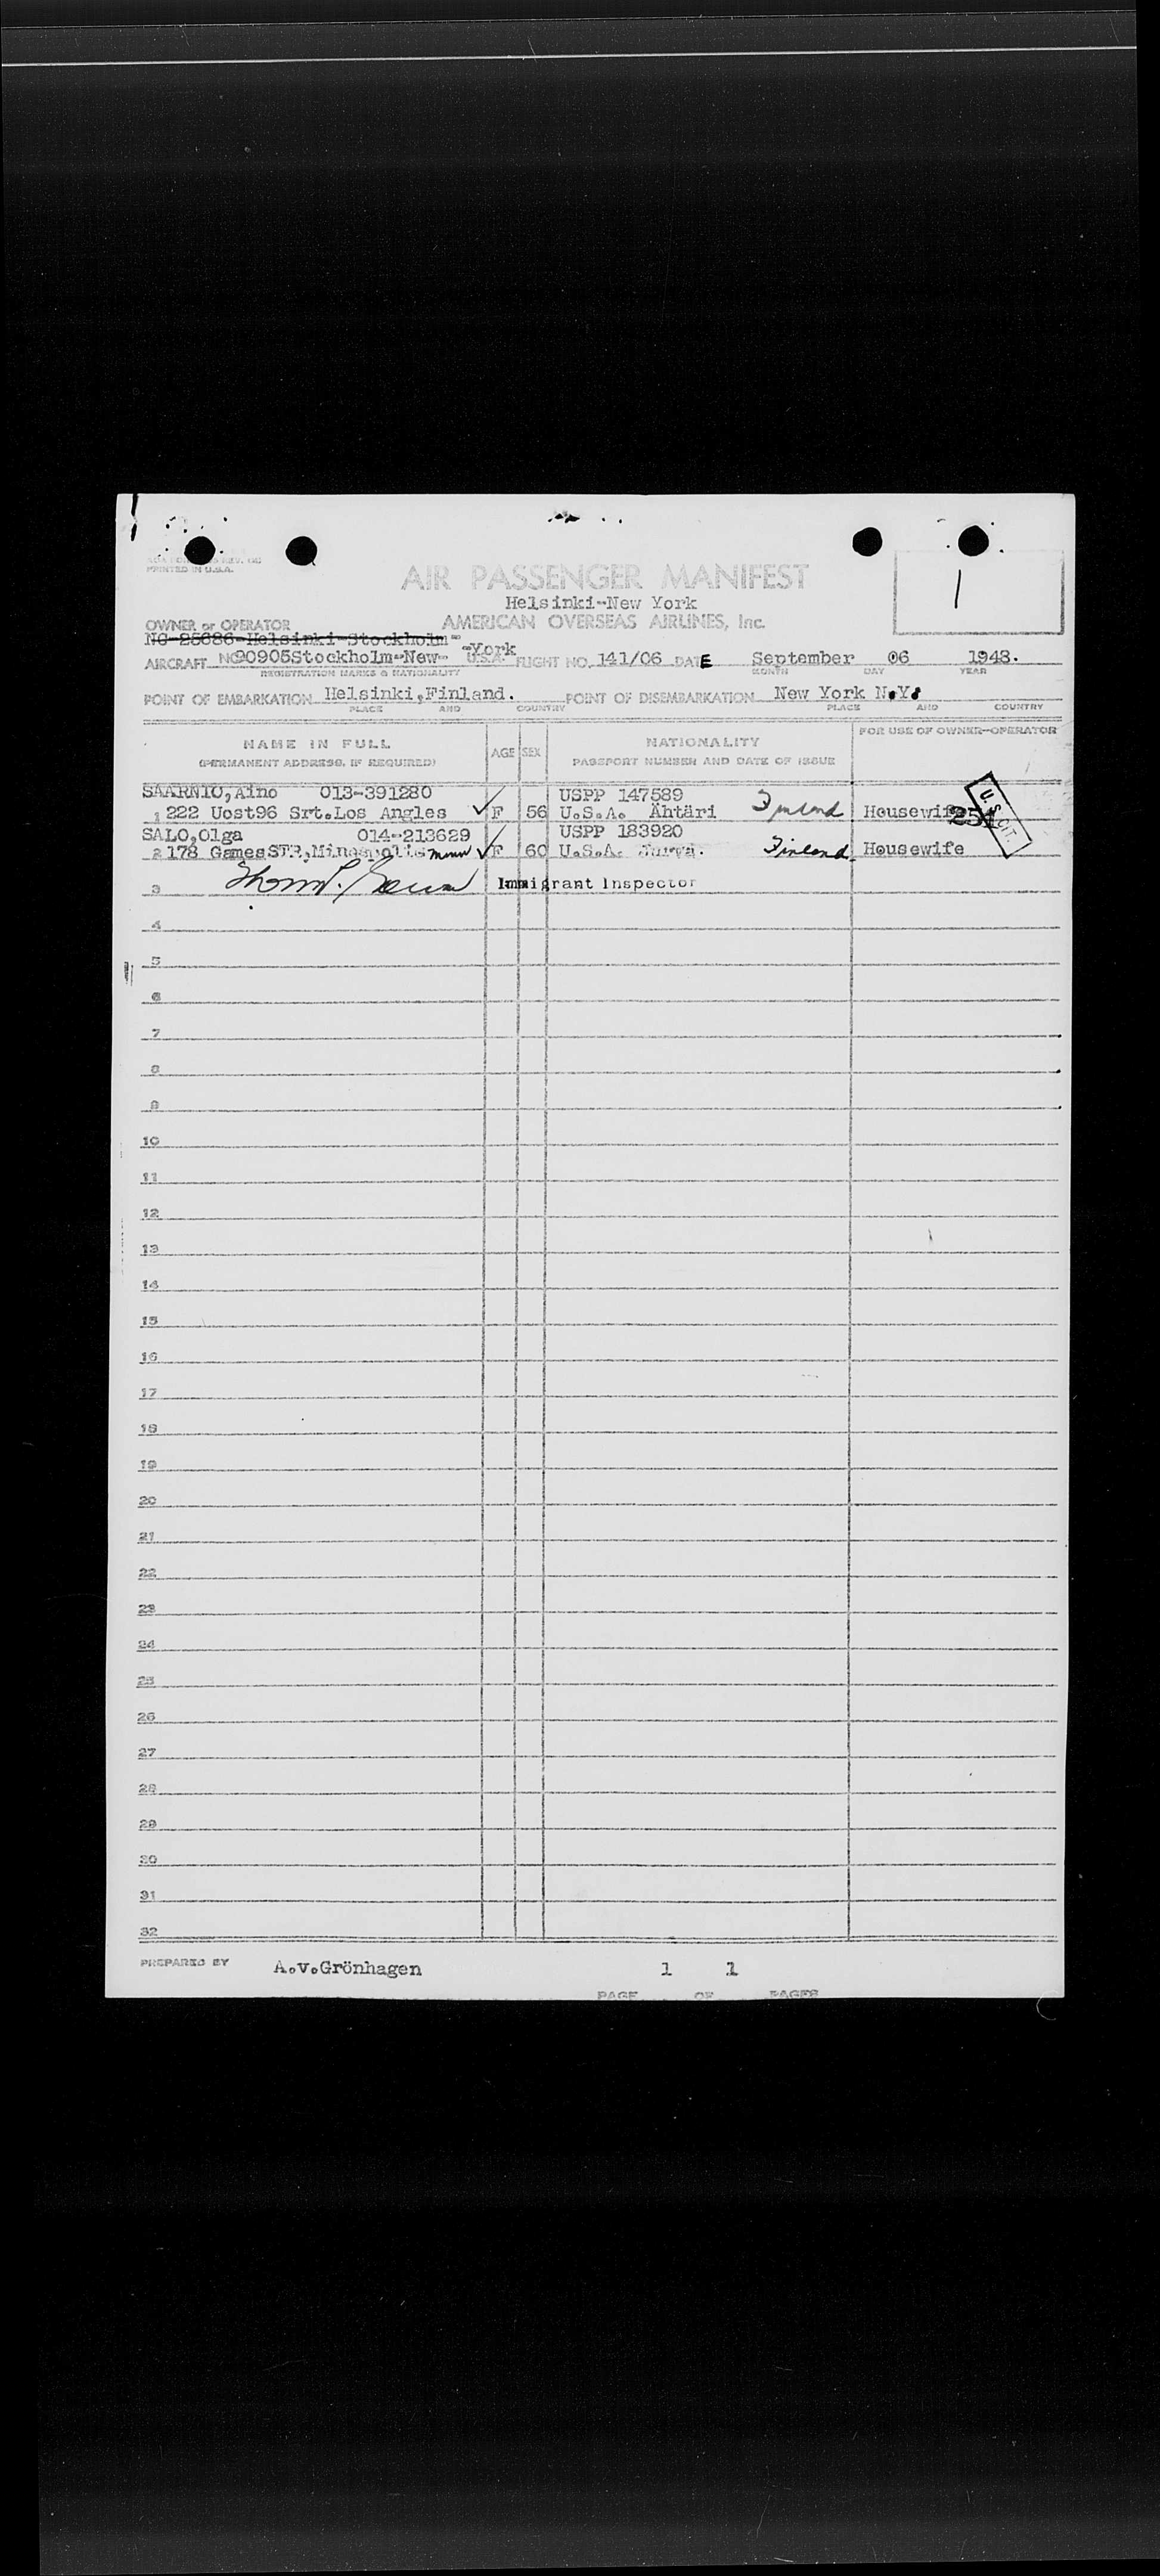 PRINTED IN U.S.A.
AIR PASSENGER MANIFEST
1
Helsinki-New York
OWNER or OPERATOR AMERICAN OVERSEAS AIRLINES, Inc.
NC-25686-Helsinki-Stockholm-
-York
AIRCRAFT NC90905Stockholm-New- U.S.A. FLIGHT NO. 141/06 DATE September 06 1948.
REGISTRATION MARKS & NATIONALITY MONTH DAY YEAR
POINT OF EMBARKATION Helsinki,Finland. POINT OF DISEMBARKATION New York N.Y.
PLACE AND COUNTRY PLACE AND COUNTRY
NAME IN FULL AGE SEX NATIONALITY FOR USE OF OWNER-OPERATOR
(PERMANENT ADDRESS, IF REQUIRED) PASSPORT NUMBER AND DATE OF ISSUE
SAARNIO,Aino 013-391280 USPP 147589
1 222 Uost96 Srt.Los Angles F 56 U.S.A. Ähtäri Finland Housewife U.S. CIT.
SALO,Olga 014-213629 USPP 183920
2 178 GamesSTR,Mineapolis Minn F 60 U.S.A. Finland Housewife
3 Immigrant Inspector
4
5
6
7
8
9
10
11
12
13
14
15
16
17
18
19
20
21
22
23
24
25
26
27
28
29
30
31
32
PREPARED BY A.v.Grönhagen 1 1
PAGE OF PAGES